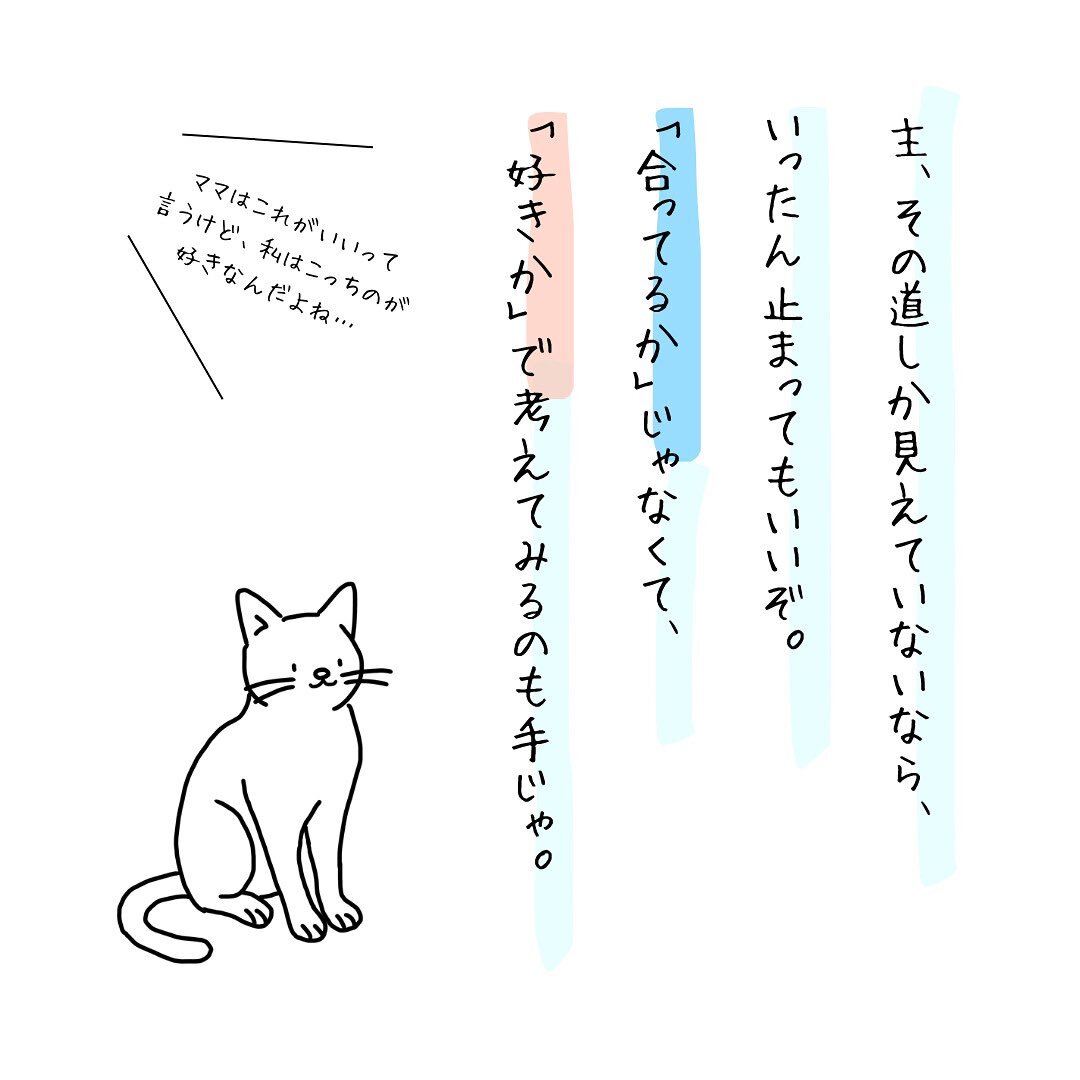 主、その道しか見えていないなら、
いったん止まってもいいぞ。
「合ってるか」じゃなくて、
「好きか」で考えてみるのも手じゃ。
ママはこれがいいって
言うけど、私はこっちのが
好きなんだよね…